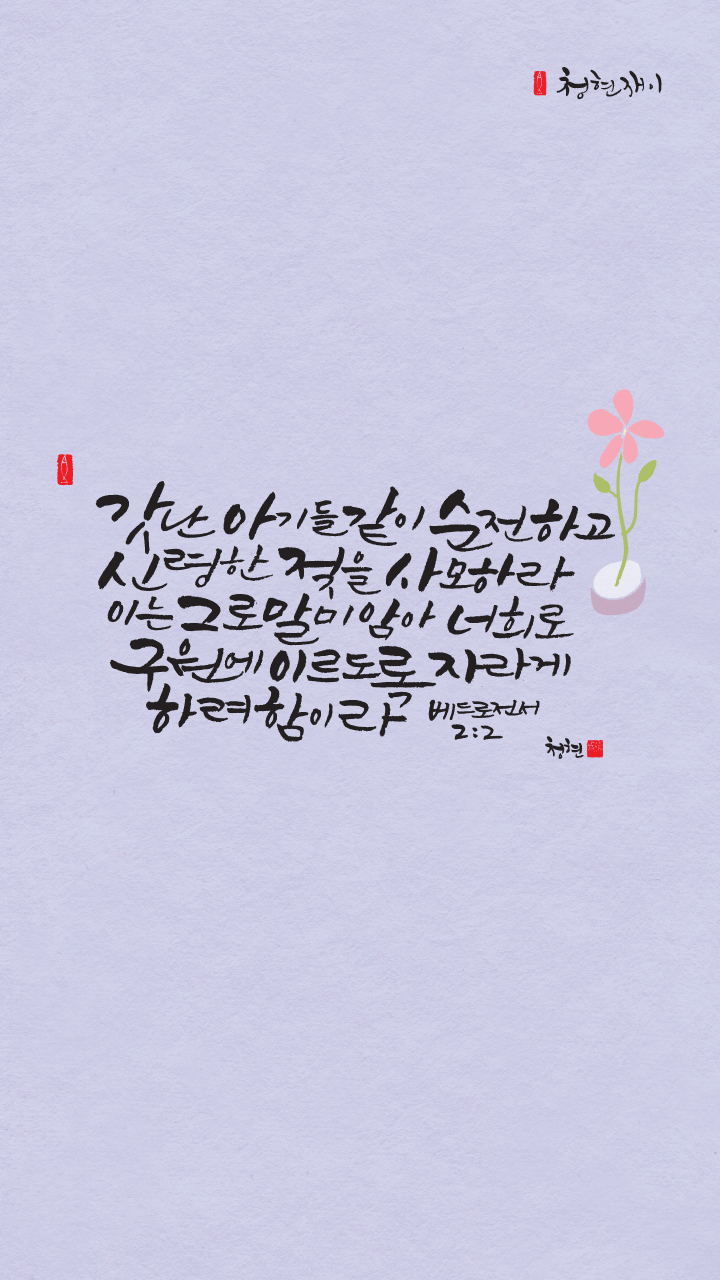 청현재이
갓난 아기들같이 순전하고
신령한 젖을 사모하라
이는 그로말미암아 너희로
구원에 이르도록 자라게
하려함이라
베드로전서
2:2
청현